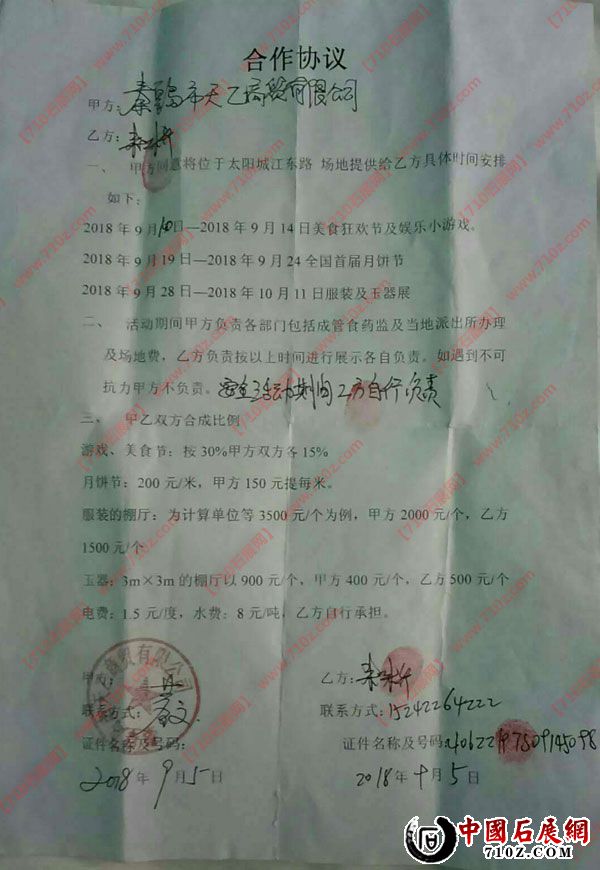 合作协议
甲方：秦皇岛市天乙商贸有限公司
乙方：
一、 甲方同意将位于太阳城江东路 场地提供给乙方具体时间安排
如下：
2018年9月10日—2018年9月14日美食狂欢节及娱乐小游戏。
2018年9月19日—2018年9月24全国首届月饼节
2018年9月28日—2018年10月11日服装及玉器展
二、 活动期间甲方负责各部门包括成管食药监及当地派出所办理
及场地费，乙方负责按以上时间进行展示各自负责。如遇到不可
抗力甲方不负责。安全活动期间乙方自行负责
三、 甲乙双方合成比例
游戏、美食节：按30%甲方双方各15%
月饼节：200元/米，甲方150元提每米。
服装的棚厅：为计算单位等3500元/个为例，甲方2000元/个，乙方
1500元/个
玉器：3m×3m的棚厅以900元/个，甲方400元/个，乙方500元/个
电费：1.5元/度，水费：8元/吨，乙方自行承担。
甲方：
乙方：
联系方式：
联系方式：15242264222
证件名称及号码：
证件名称及号码：
2018年9月5日
2018年 月5日
中國石展網
7102.COM
【710石展网】www.7102.com